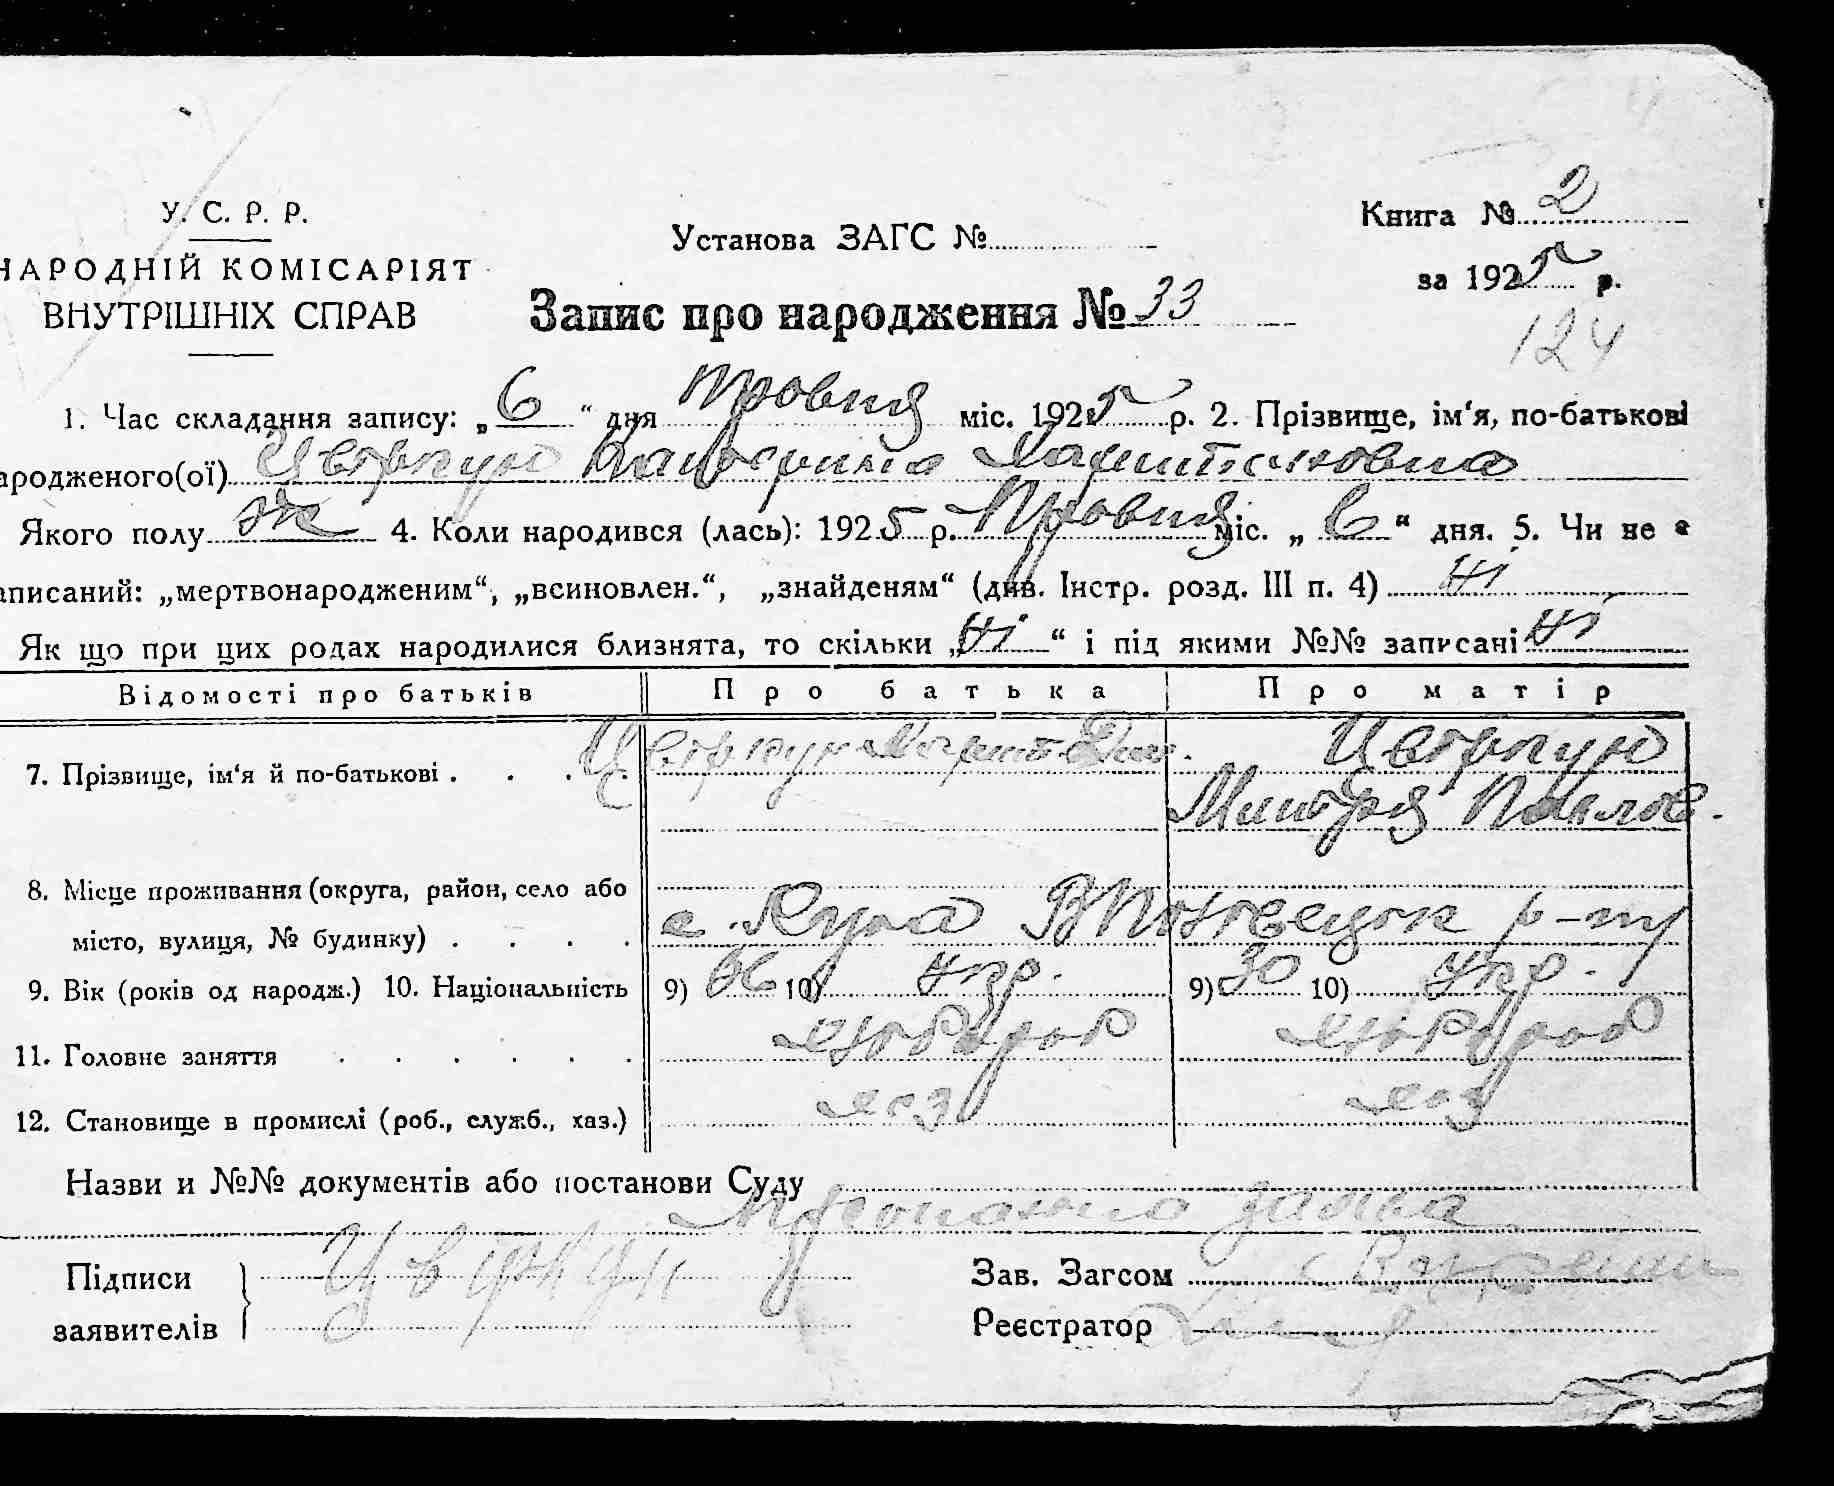 У. С. Р. Р.
НАРОДНІЙ КОМІСАРІЯТ
ВНУТРІШНІХ СПРАВ
Установа ЗАГС №
Книга № 2
за 1925 р.
Запис про народження № 33
124
1. Час складання запису: „6“ дня Травня міс. 1925 р. 2. Прізвище, ім‘я, по-батькові
ародженого(ої) Цвіркун Катерина Харитоновна
Якого полу ж 4. Коли народився (лась): 1925 р. Травня міс. „6“ дня. 5. Чи не є
аписаний: „мертвонародженим“, „всиновлен.“, „знайденям“ (див. Інстр. розд. III п. 4) ні
Як що при цих родах народилися близнята, то скільки „ні“ і під якими №№ записані ні
Відомості про батьків Про батька Про матір
7. Прізвище, ім‘я й по-батькові . . . . Цвіркун Харит. Цвіркун
Павлов.
8. Місце проживання (округа, район, село або
місто, вулиця, № будинку) . . . . с. р-ну
9. Вік (років од народж.) 10. Національність 9) 36 10) Укр. 9) 30 10) Укр.
11. Головне заняття . . . . . . хлібороб хлібороб
12. Становище в промислі (роб., служб., хаз.) хаз хаз
Назви и №№ документів або постанови Суду
заява
Підписи Цвіркун Зав. Загсом
заявителів Реєстратор